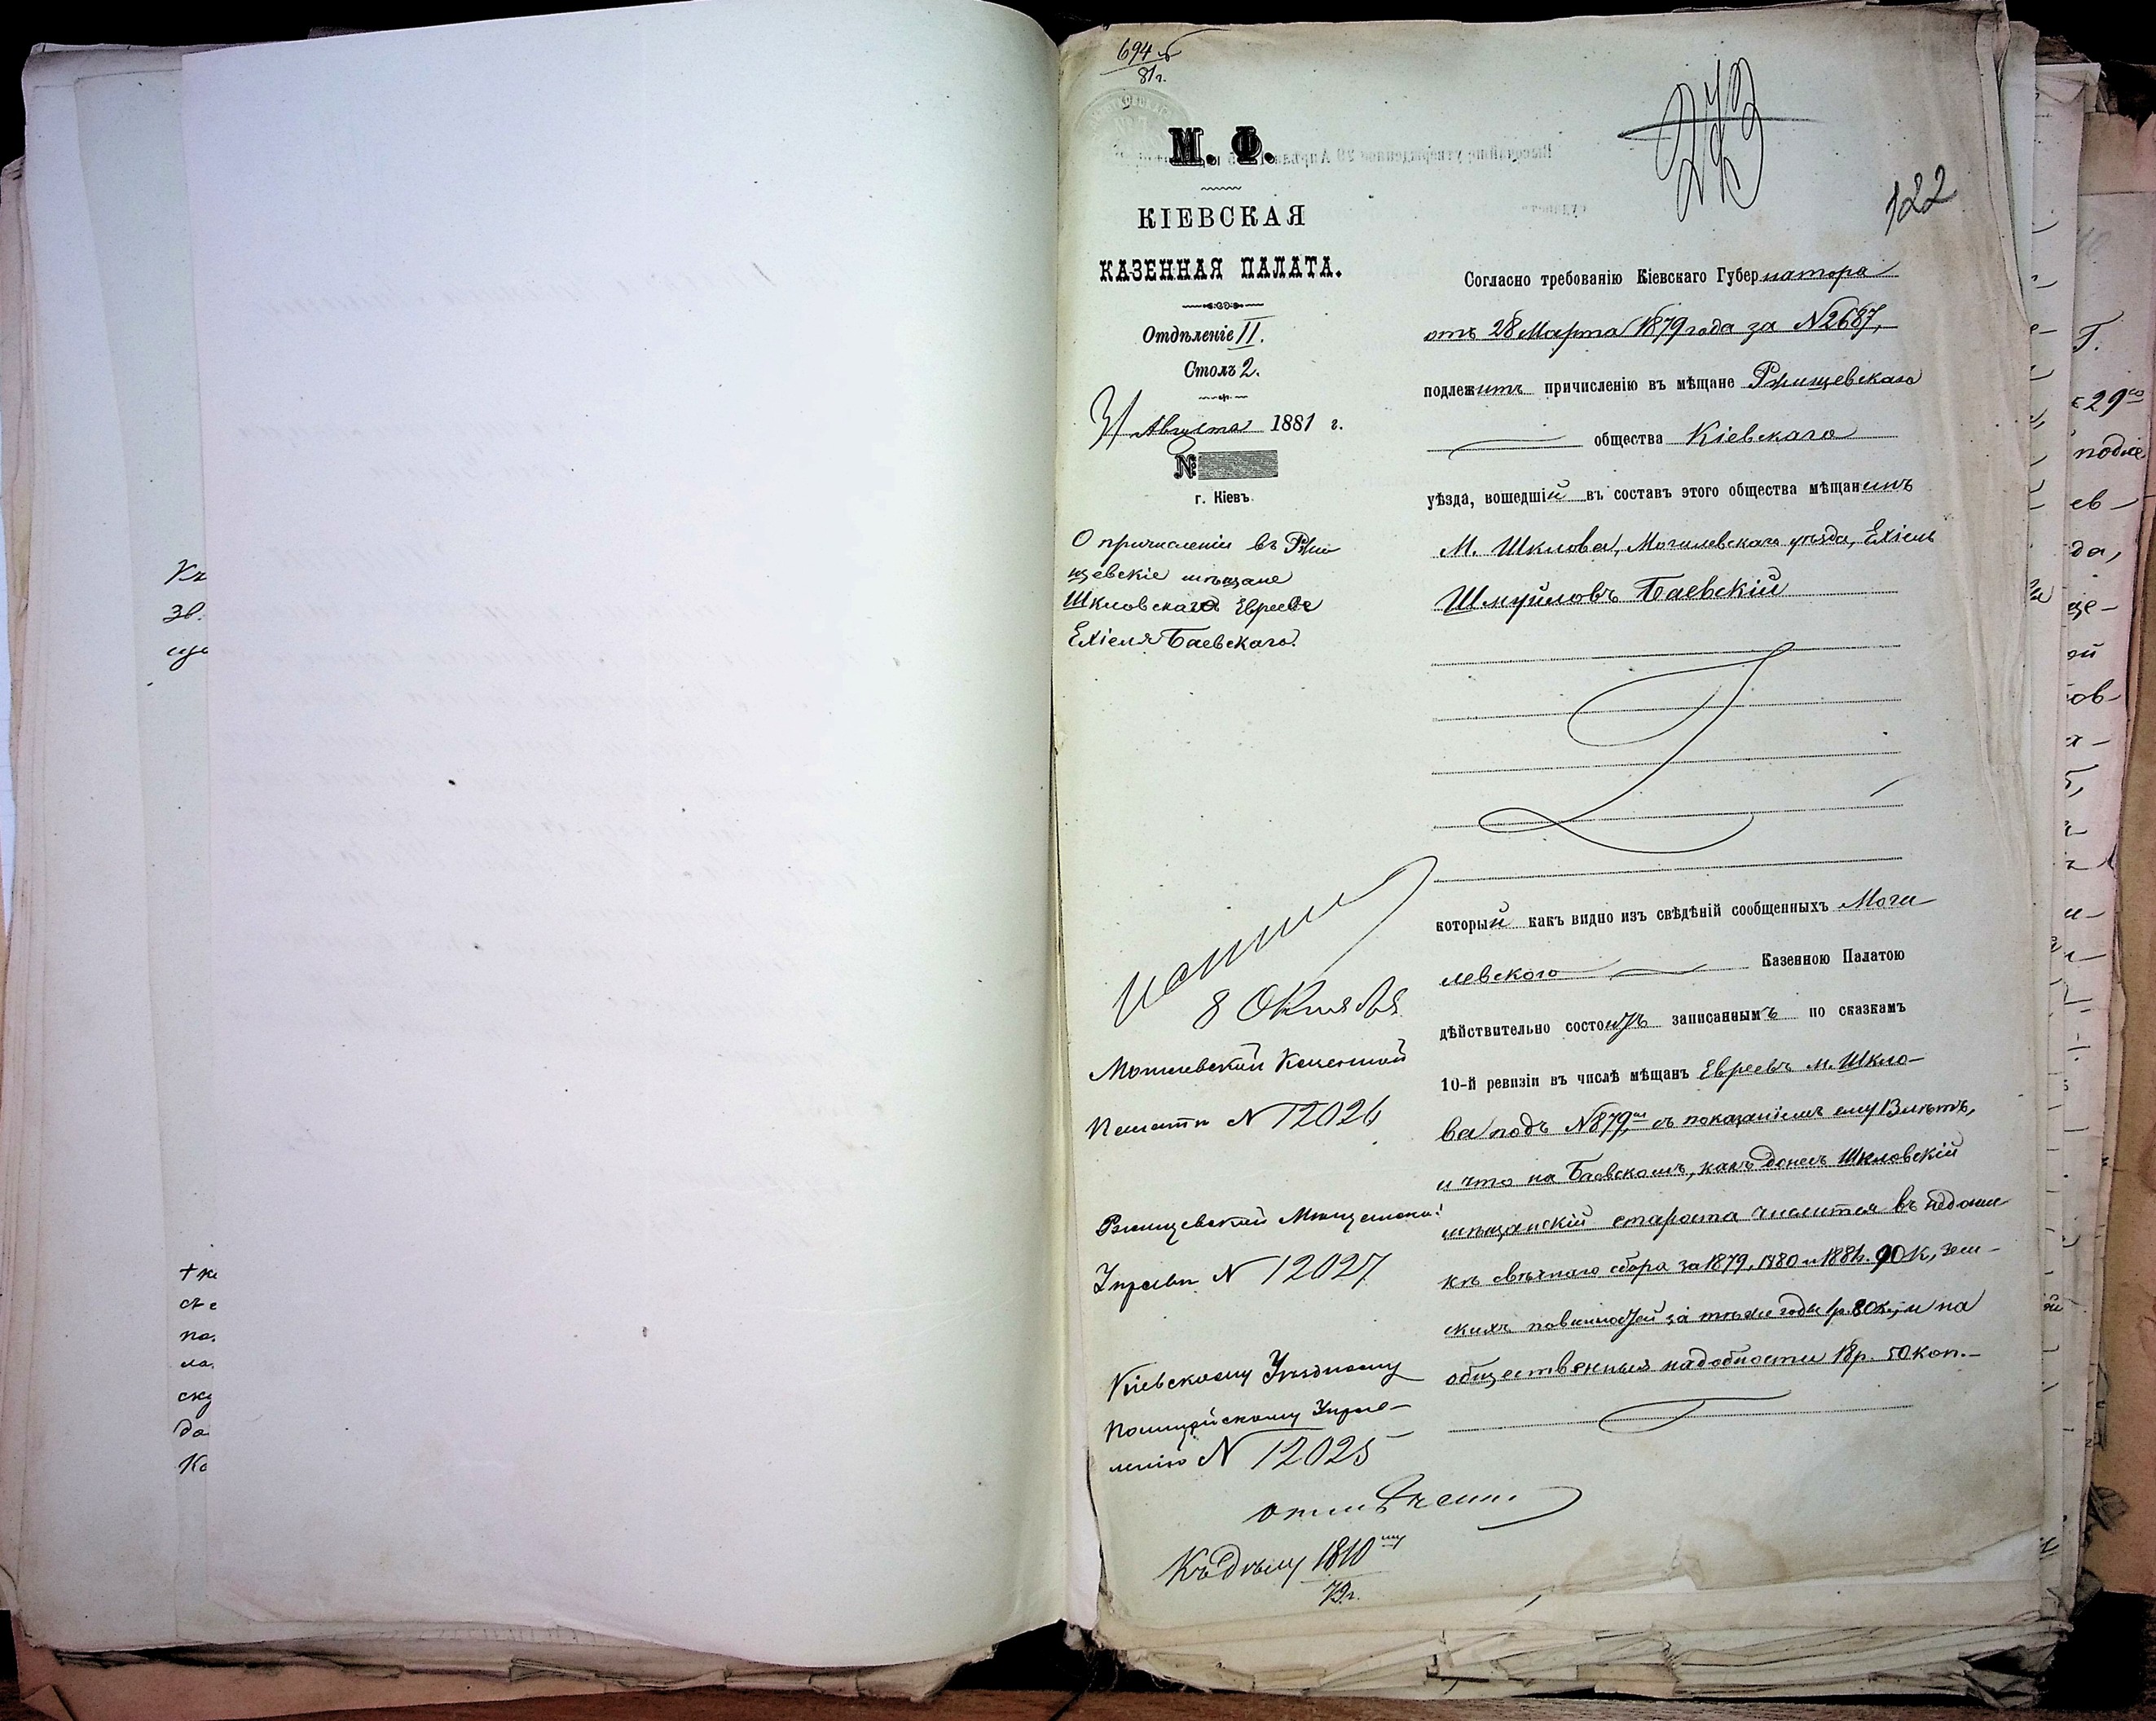 694
81 г.
М. Ф.
КІЕВСКАЯ
КАЗЕННАЯ ПАЛАТА.
Отдѣленіе II.
Столъ 2.
31 Августа 1881 г.
№
г. Кіевъ.
О причисленіи въ Ржи
щевскіе мѣщане
Шкловскаго Еврея
Ехіеля Баевскаго.
8 Октября
Могилевской Казенной
Палатѣ N 12026
Ржищевской Мѣщанской
Управѣ N 12027
Кіевскому Уѣздному
Полицейскому Управ-
ленію N 12025
отмѣчено
Къ дѣлу 1810
79 г.
122
Согласно требованію Кіевскаго Губернатора
отъ 28 Марта 1879 года за N 2687,
подлежитъ причисленію въ мѣщане Ржищевскаго
общества Кіевскаго
уѣзда, вошедшій въ составъ этого общества мѣщанинъ
М. Шклова, Могилевскаго уѣзда, Ехіель
Шмуйловъ Баевскій
который какъ видно изъ свѣдѣній сообщенныхъ Моги
левскою Казенною Палатою
дѣйствительно состоитъ записаннымъ по сказкамъ
10-й ревизіи въ числѣ мѣщанъ Евреевъ м. Шкло-
ва подъ N 879, съ показаніемъ ему 3 лѣтъ,
и что на Баевскомъ, какъ донесъ Шкловскій
мѣщанскій староста числится въ недоим
кѣ свѣчнаго сбора за 1879, 1880 и 1881 г. 90 к, зем-
скихъ повинностей за тѣже годы 1 р. 80 к, и на
общественныя надобности 18 р. 50 коп.-